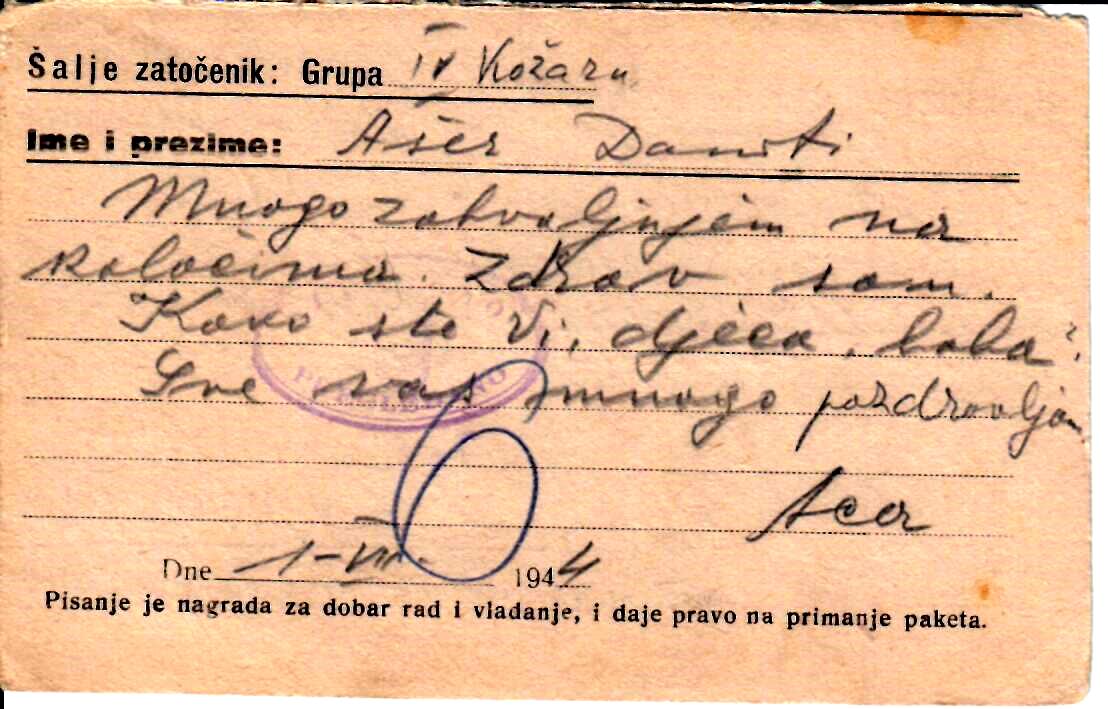 Šalje zatočenik: Grupa IV Kožara
Ime i prezime: Ašer Daniti
Mnogo zahvaljujem na
kolačima. Zdrav sam.
Kako ste Vi, djeca, baba?
Sve vas mnogo pozdravljam
Aca
Dne 1-VII- 1944
Pisanje je nagrada za dobar rad i vladanje, i daje pravo na primanje paketa.